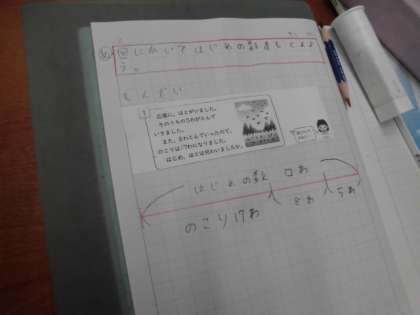 め 図にかいてはじめの数をもとめよ
う。
もんだい
1 広場に、はとがいました。
そのうちの5わがとんで
いきました。
また、8わとんでいったので、
のこりは17わになりました。
はじめ、はとは何わいましたか。
はじめの数 □わ
のこり17わ 8わ 5わ